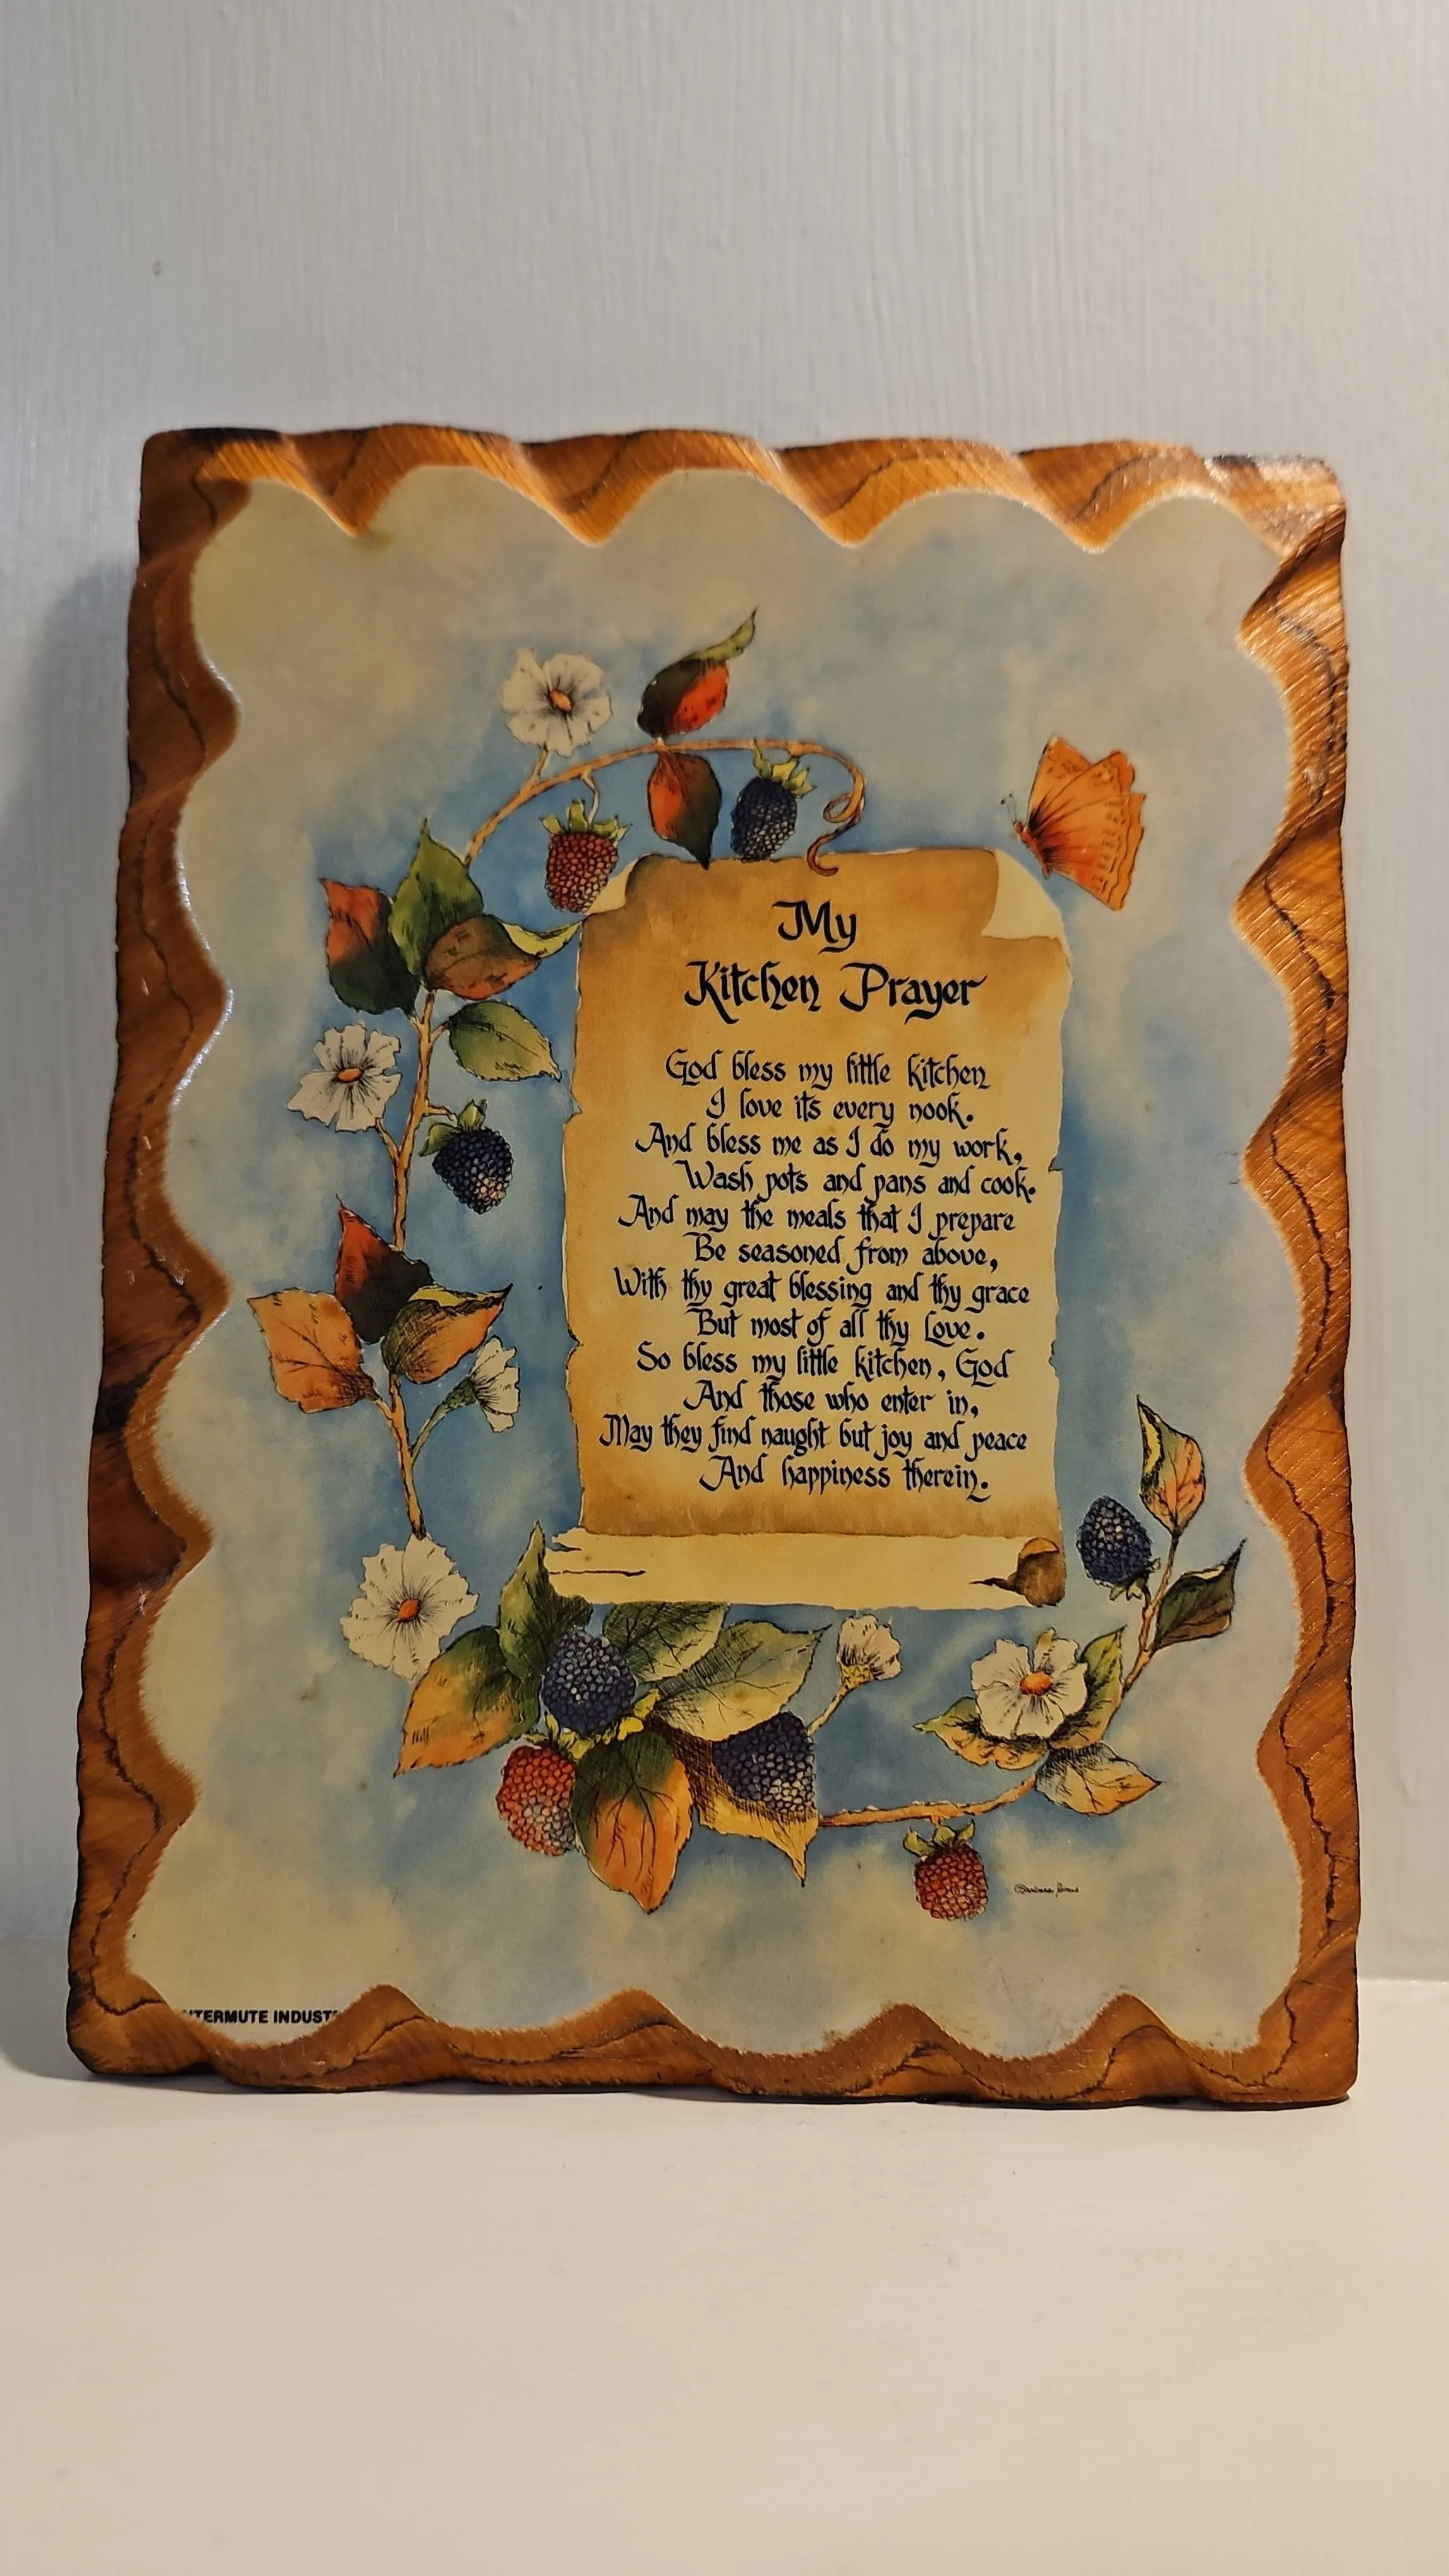 My
Kitchen Prayer
God bless my little kitchen
I love its every nook.
And bless me as I do my work,
Wash pots and pans and cook.
And may the meals that I prepare
Be seasoned from above,
With thy great blessing and thy grace
But most of all thy Love.
So bless my little kitchen, God
And those who enter in,
May they find naught but joy and peace
And happiness therein.